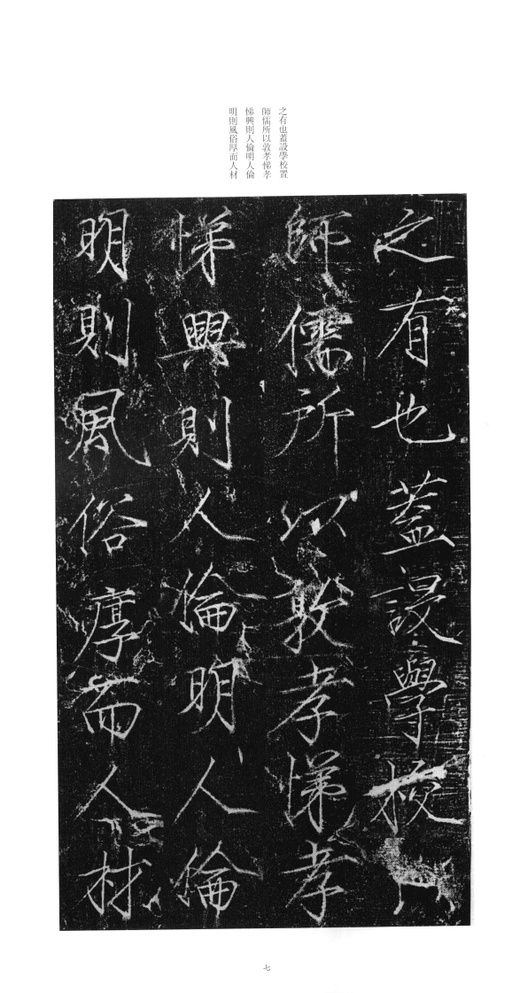 之有也蓋設學校置
師儒所以敦孝悌孝
悌興則人倫明人倫
明則風俗厚而人材
之有也蓋設學校
師儒所以敦孝悌孝
悌興則人倫明人倫
明則風俗厚而人材
七